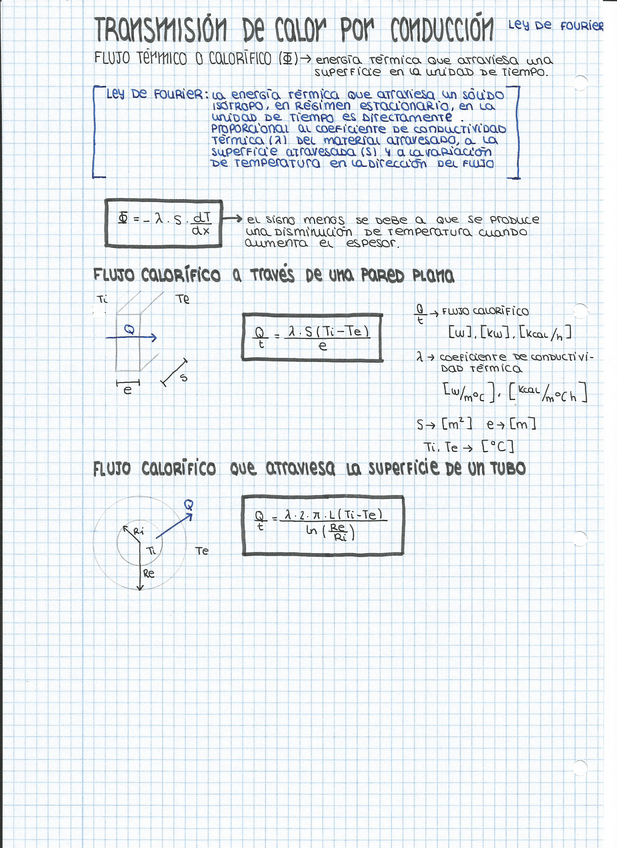 TRANSMISIÓN DE CALOR POR CONDUCCIÓN LEY DE FOURIER
FLUJO TÉRMICO O CALORÍFICO (Φ) → energía térmica que atraviesa una
superficie en la unidad de tiempo.
LEY DE FOURIER: La energía térmica que atraviesa un sólido
isótropo, en régimen estacionario, en la
unidad de tiempo es directamente.
proporcional al coeficiente de conductividad
térmica (λ) del material atravesado, a la
superficie atravesada (S) y a la variación
de temperatura en la dirección del flujo
Φ = - λ · S · dT/dx → el signo menos se debe a que se produce
una disminución de temperatura cuando
aumenta el espesor.
FLUJO CALORÍFICO A TRAVÉS DE UNA PARED PLANA
Ti Te
Q
e
S
Q/t = λ · S (Ti - Te) / e
Q/t → FLUJO CALORÍFICO
[W], [KW], [Kcal/h]
λ → coeficiente de conductivi-
dad térmica
[W/mºC], [Kcal/mºCh]
S → [m²] e → [m]
Ti, Te → [°C]
FLUJO CALORÍFICO QUE ATRAVIESA LA SUPERFICIE DE UN TUBO
Q
Ri
Ti Te
Re
Q/t = λ · 2 · π · L (Ti - Te) / ln (Re/Ri)